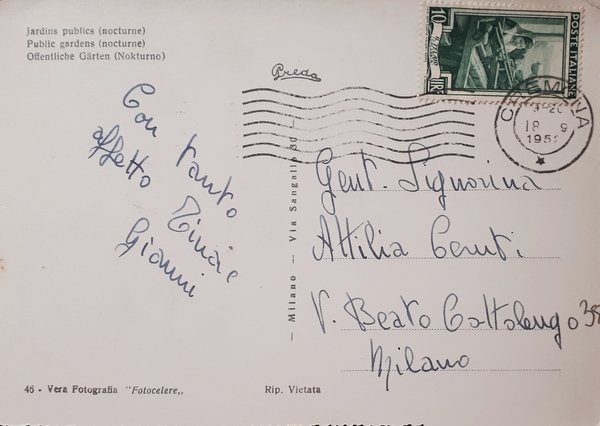 Jardins publics (nocturne)
Public gardens (nocturne)
Offentliche Gärten (Nokturno)
Preda
10
LIRE
POSTE ITALIANE
CREMONA
18 9
195
Con tanto
affetto
Gianni
Gent. Signorina
Attilia Ceruti
V. Beato Cottolengo 38
Milano
— Milano — Via Sangallo 30 —
46 - Vera Fotografia "Fotocelere„
Rip. Vietata